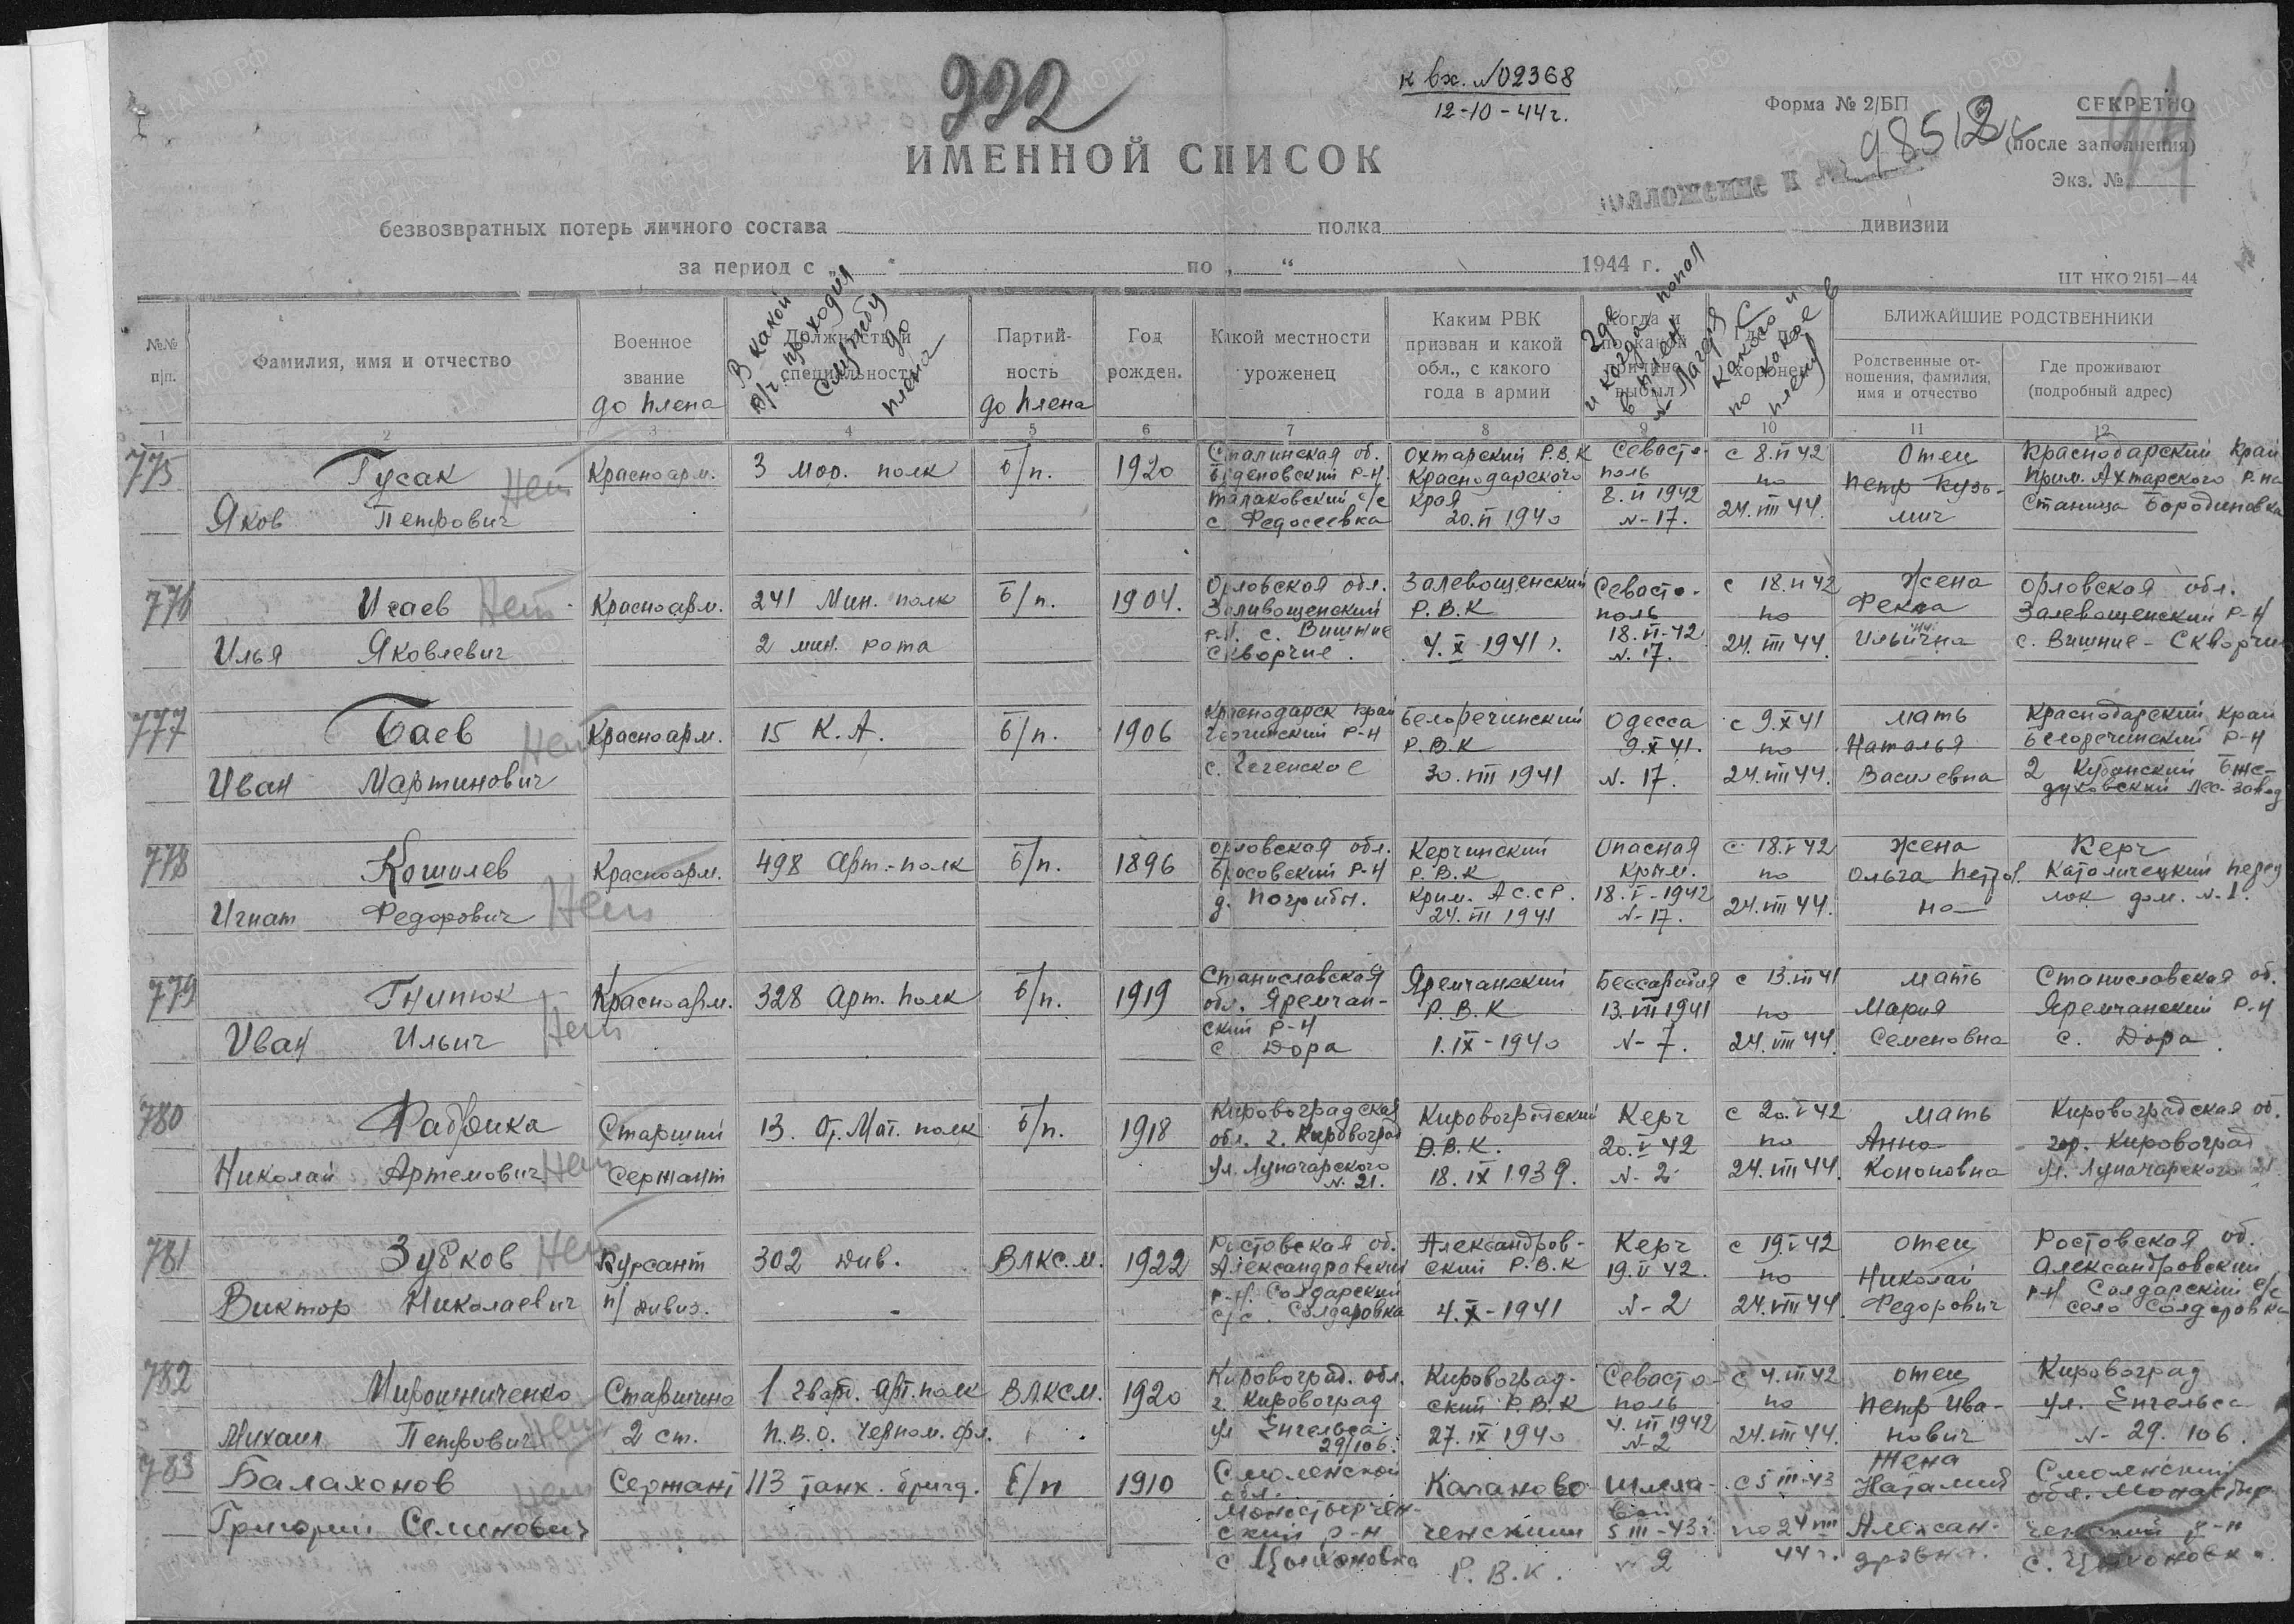 222
к вх. №02368
12-10-44г.
Форма № 2/БП
СЕКРЕТНО
(после заполнения)
Экз. №
98512
ИМЕННОЙ СПИСОК
безвозвратных потерь личного состава полка дивизии
за период с „ “ по „ “ 1944 г.
ЦТ НКО 2151—44
№№ п|п.
Фамилия, имя и отчество
Военное звание
до плена
Должность и специальность
В какой в/ч. проходил службу до плена
Партийность
до плена
Год рожден.
Какой местности уроженец
Каким РВК призван и какой обл., с какого года в армии
Когда и по какой причине выбыл
где и когда попал в плен
Где похоронен
с какого и по какое в плену
БЛИЖАЙШИЕ РОДСТВЕННИКИ
Родственные отношения, фамилия, имя и отчество
Где проживают (подробный адрес)
1 2 3 4 5 6 7 8 9 10 11 12
775 Гусак Яков Петрович Нет
Красноарм.
3 мор. полк
б/п.
1920
Сталинская об.
Буденовский р-н.
Талаковский с/с
с. Федосеевка
Охтарский Р.В.К
Краснодарского
края
20.VI 1940
Севасто-
поль
8.VI 1942
N-17.
с 8.VI 42
по
24.VIII 44.
Отец
Петр Кузь-
мич
Краснодарский край
Прим. Ахтарского р-на
Станица Бородиновка
776 Исаев Илья Яковлевич Нет
Красноарм.
241 Мин. полк
2 мин. рота
б/п.
1904.
Орловская обл.
Заливощенский
р-н. с. Вишние
Скворчие.
Залевощенский
Р.В.К
4.X-1941 г.
Севасто-
поль
18.VI-42
N. 17.
с 18.VI 42
по
24.VIII 44.
Жена
Фекла
Ильична
Орловская обл.
Залевощенский р-н
с. Вишние - Скворчие
777 Баев Иван Мартинович Нет
Красноарм.
15 К.А.
б/п.
1906
Краснодарск край
р-н
с. Чегенское
Белореченский
Р.В.К
30.VIII 1941
Одесса
9.X 41.
N. 17.
с 9.X 41
по
24.VIII 44.
мать
Наталья
Василевна
Краснодарский край
Белоречинский р-н
2 Кубанский Бже-
духовский лес-завод
778 Кошилев Игнат Федорович Нет
Красноарм.
498 Арт.-полк
б/п.
1896
Орловская обл.
Бросовский р-н
д. Погрибы.
Керчинский
Р.В.К
Крим. АССР.
24.VII 1941
Опасная
Крым.
18.V-1942
N-17.
с 18.V 42
по
24.VIII 44.
жена
Ольга Петров
на
Керч
Католичецкий переу
лок дом. N-1.
779 Гнипюк Иван Ильич Нет
Красноарм.
328 Арт. полк
б/п.
1919
Станиславская
обл. Яремчан-
ский р-н
с. Дора
Яремчанский
Р.В.К
1.IX-1940
Бессарабия
13.VII 1941
N-7.
с 13.VII 41
по
24.VIII 44.
мать
Мария
Семеновна
Станиславская об.
Яремчанский р-н
с. Дора.
780 Фабрика Николай Артемович Нет
Старший
Сержант
13. От. Мат. полк
б/п.
1918
Кировоградская
обл. г. Кировоград
ул. Луначарского
N. 21.
Кировоградский
Р.В.К.
18.IX 1939.
Керч
20.V 42
N-2
с 20.V 42
по
24.VIII 44.
мать
Анна
Кононовна
Кировоградская об.
гор. Кировоград
ул. Луначарского 21
781 Зубков Виктор Николаевич Нет
Курсант
п/дивиз.
302 Див.
ВЛКС.М.
1922
Ростовская об.
Александровский
р-н. Солдарский
с/с. Солдаровка
Александров-
ский Р.В.К
4.X-1941
Керч
19.V 42.
N-2
с 19.V 42
по
24.VIII 44.
отец
Николай
Федорович
Ростовская об.
Александровский
р-н Солдарский с/с
село Солдаровка
782 Мирошниченко Михаил Петрович Нет
Старшина
2 ст.
1 гвард. арт. полк
П.В.О. Черном. фл.
ВЛКСМ.
1920
Кировоград. обл.
г. Кировоград
ул Енгельса
29/106.
Кировоград-
ский Р.В.К
27.IX 1940
Севасто-
поль
4.VII 1942
N-2
с 4.VII 42
по
24.VIII 44.
отец
Петр Ива-
нович
Кировоград
ул. Енгельса
N-29. 106.
783 Балахонов Григорий Семенович Нет
Сержант
113 танк. бригд.
б/п
1910
Смоленской
обл.
Монастырчен-
ский р-н
Р.В.К.
5 III-43г
N 2
с 5 III-43
по 24 VIII
44г.
Жена
Наталия
Алексан-
дровна.
Смоленский
обл. Монастыр
ченский р-н